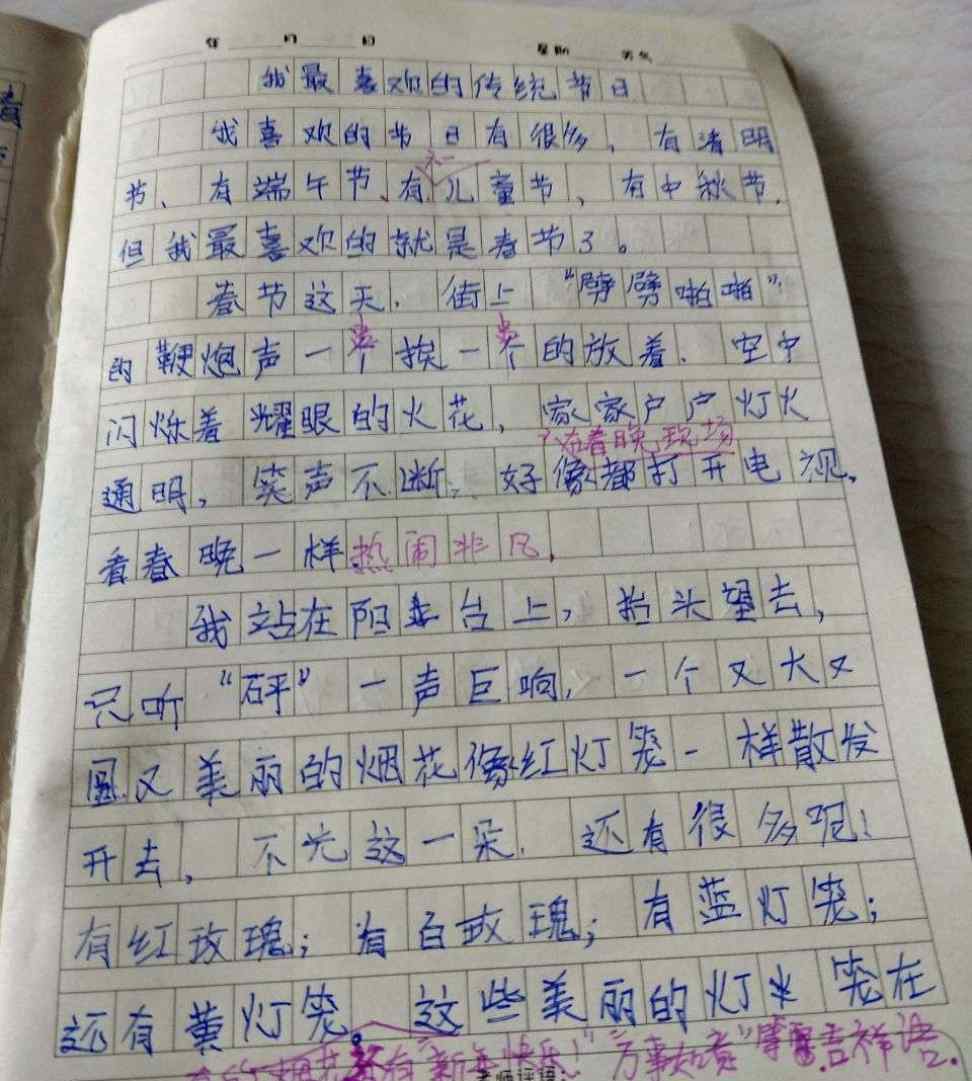 年 月 日 星期 天气
我最喜欢的传统节日
我喜欢的节日有很多，有清明
节、有端午节、有儿童节，有中秋节，
但我最喜欢的就是春节了。
春节这天，街上“劈劈啪啪”
的鞭炮声一个挨一个的放着，空中
闪烁着耀眼的火花，家家户户灯火
在春晚现场
通明，笑声不断，好像都打开电视，
看春晚一样热闹非凡，
我站在阳台上，抬头望去，
只听“砰”一声巨响，一个又大又
圆又美丽的烟花像红灯笼一样散发
开去，不光这一朵，还有很多呢！
有红玫瑰；有白玫瑰；有蓝灯笼；
还有黄灯笼。这些美丽的灯笼在
烟花还有“新年快乐！”“万事如意”等吉祥语。
老师评语：